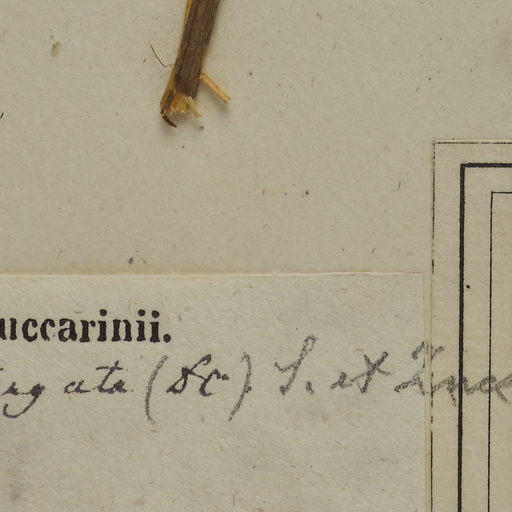 uccarinii.
irgata (DC) S. et Zucc